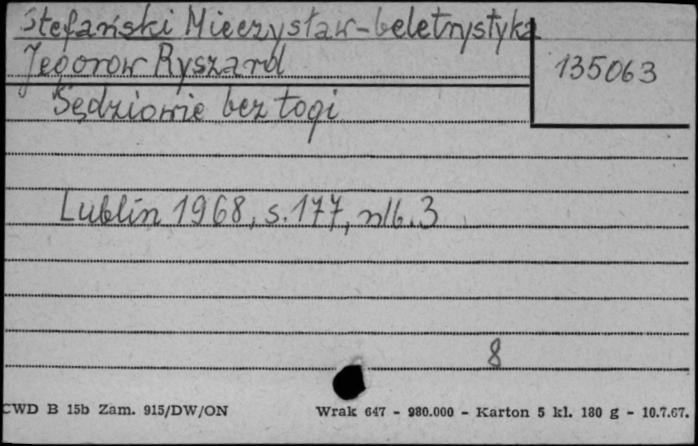 Stefański Mieczysław-beletrystyka
Jegorow Ryszard
135063
Sędziowie bez togi
Lublin 1968, s.177, nlb.3
8
CWD B 15b Zam. 915/DW/ON
Wrak 647 - 980.000 - Karton 5 kl. 180 g - 10.7.67.